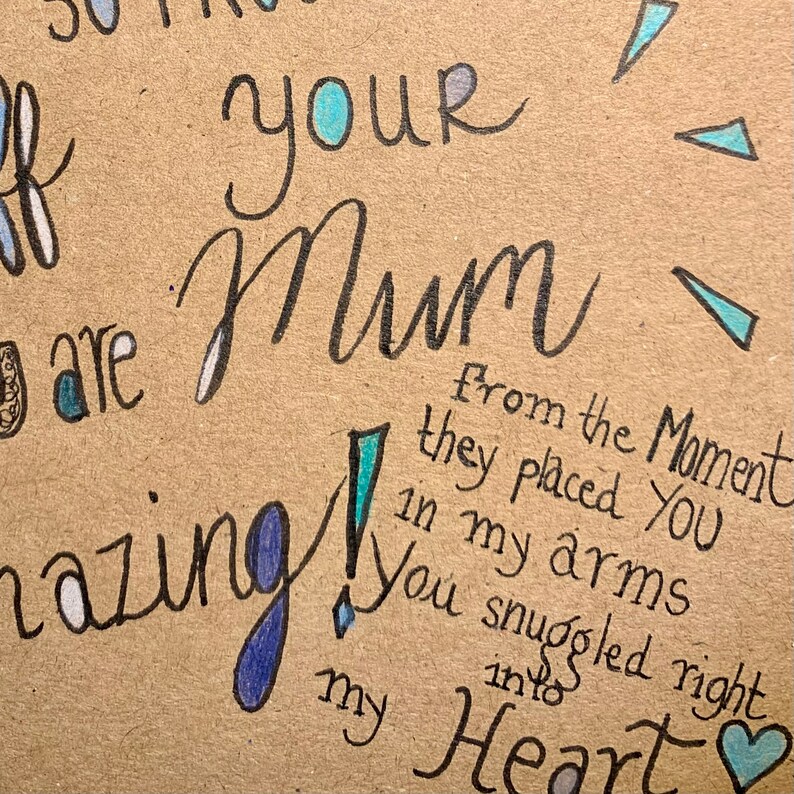 your
Mum
are
from the Moment
they placed YOU
in my arms
You snuggled right
into
my Heart